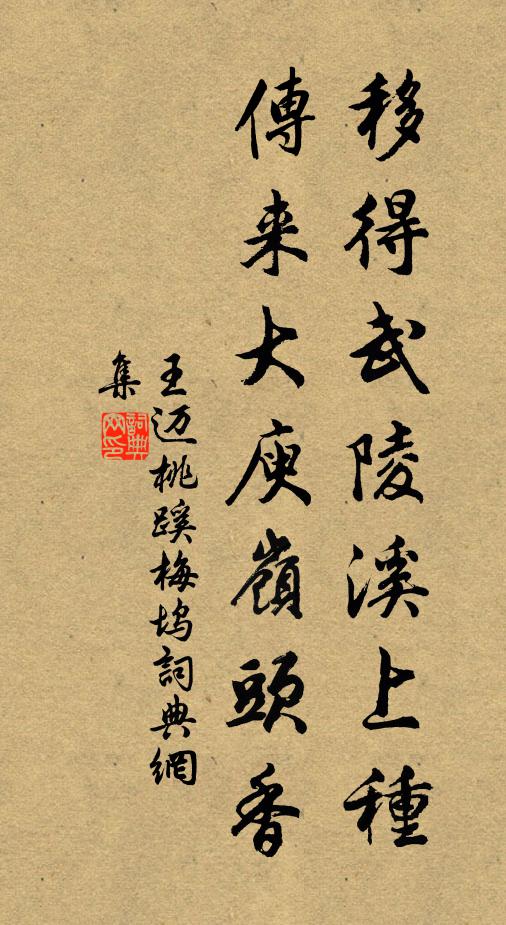 移得武陵溪上種
傳来大庾嶺頭香
王迈桃蹊梅坞詞典網
集
詞典网印